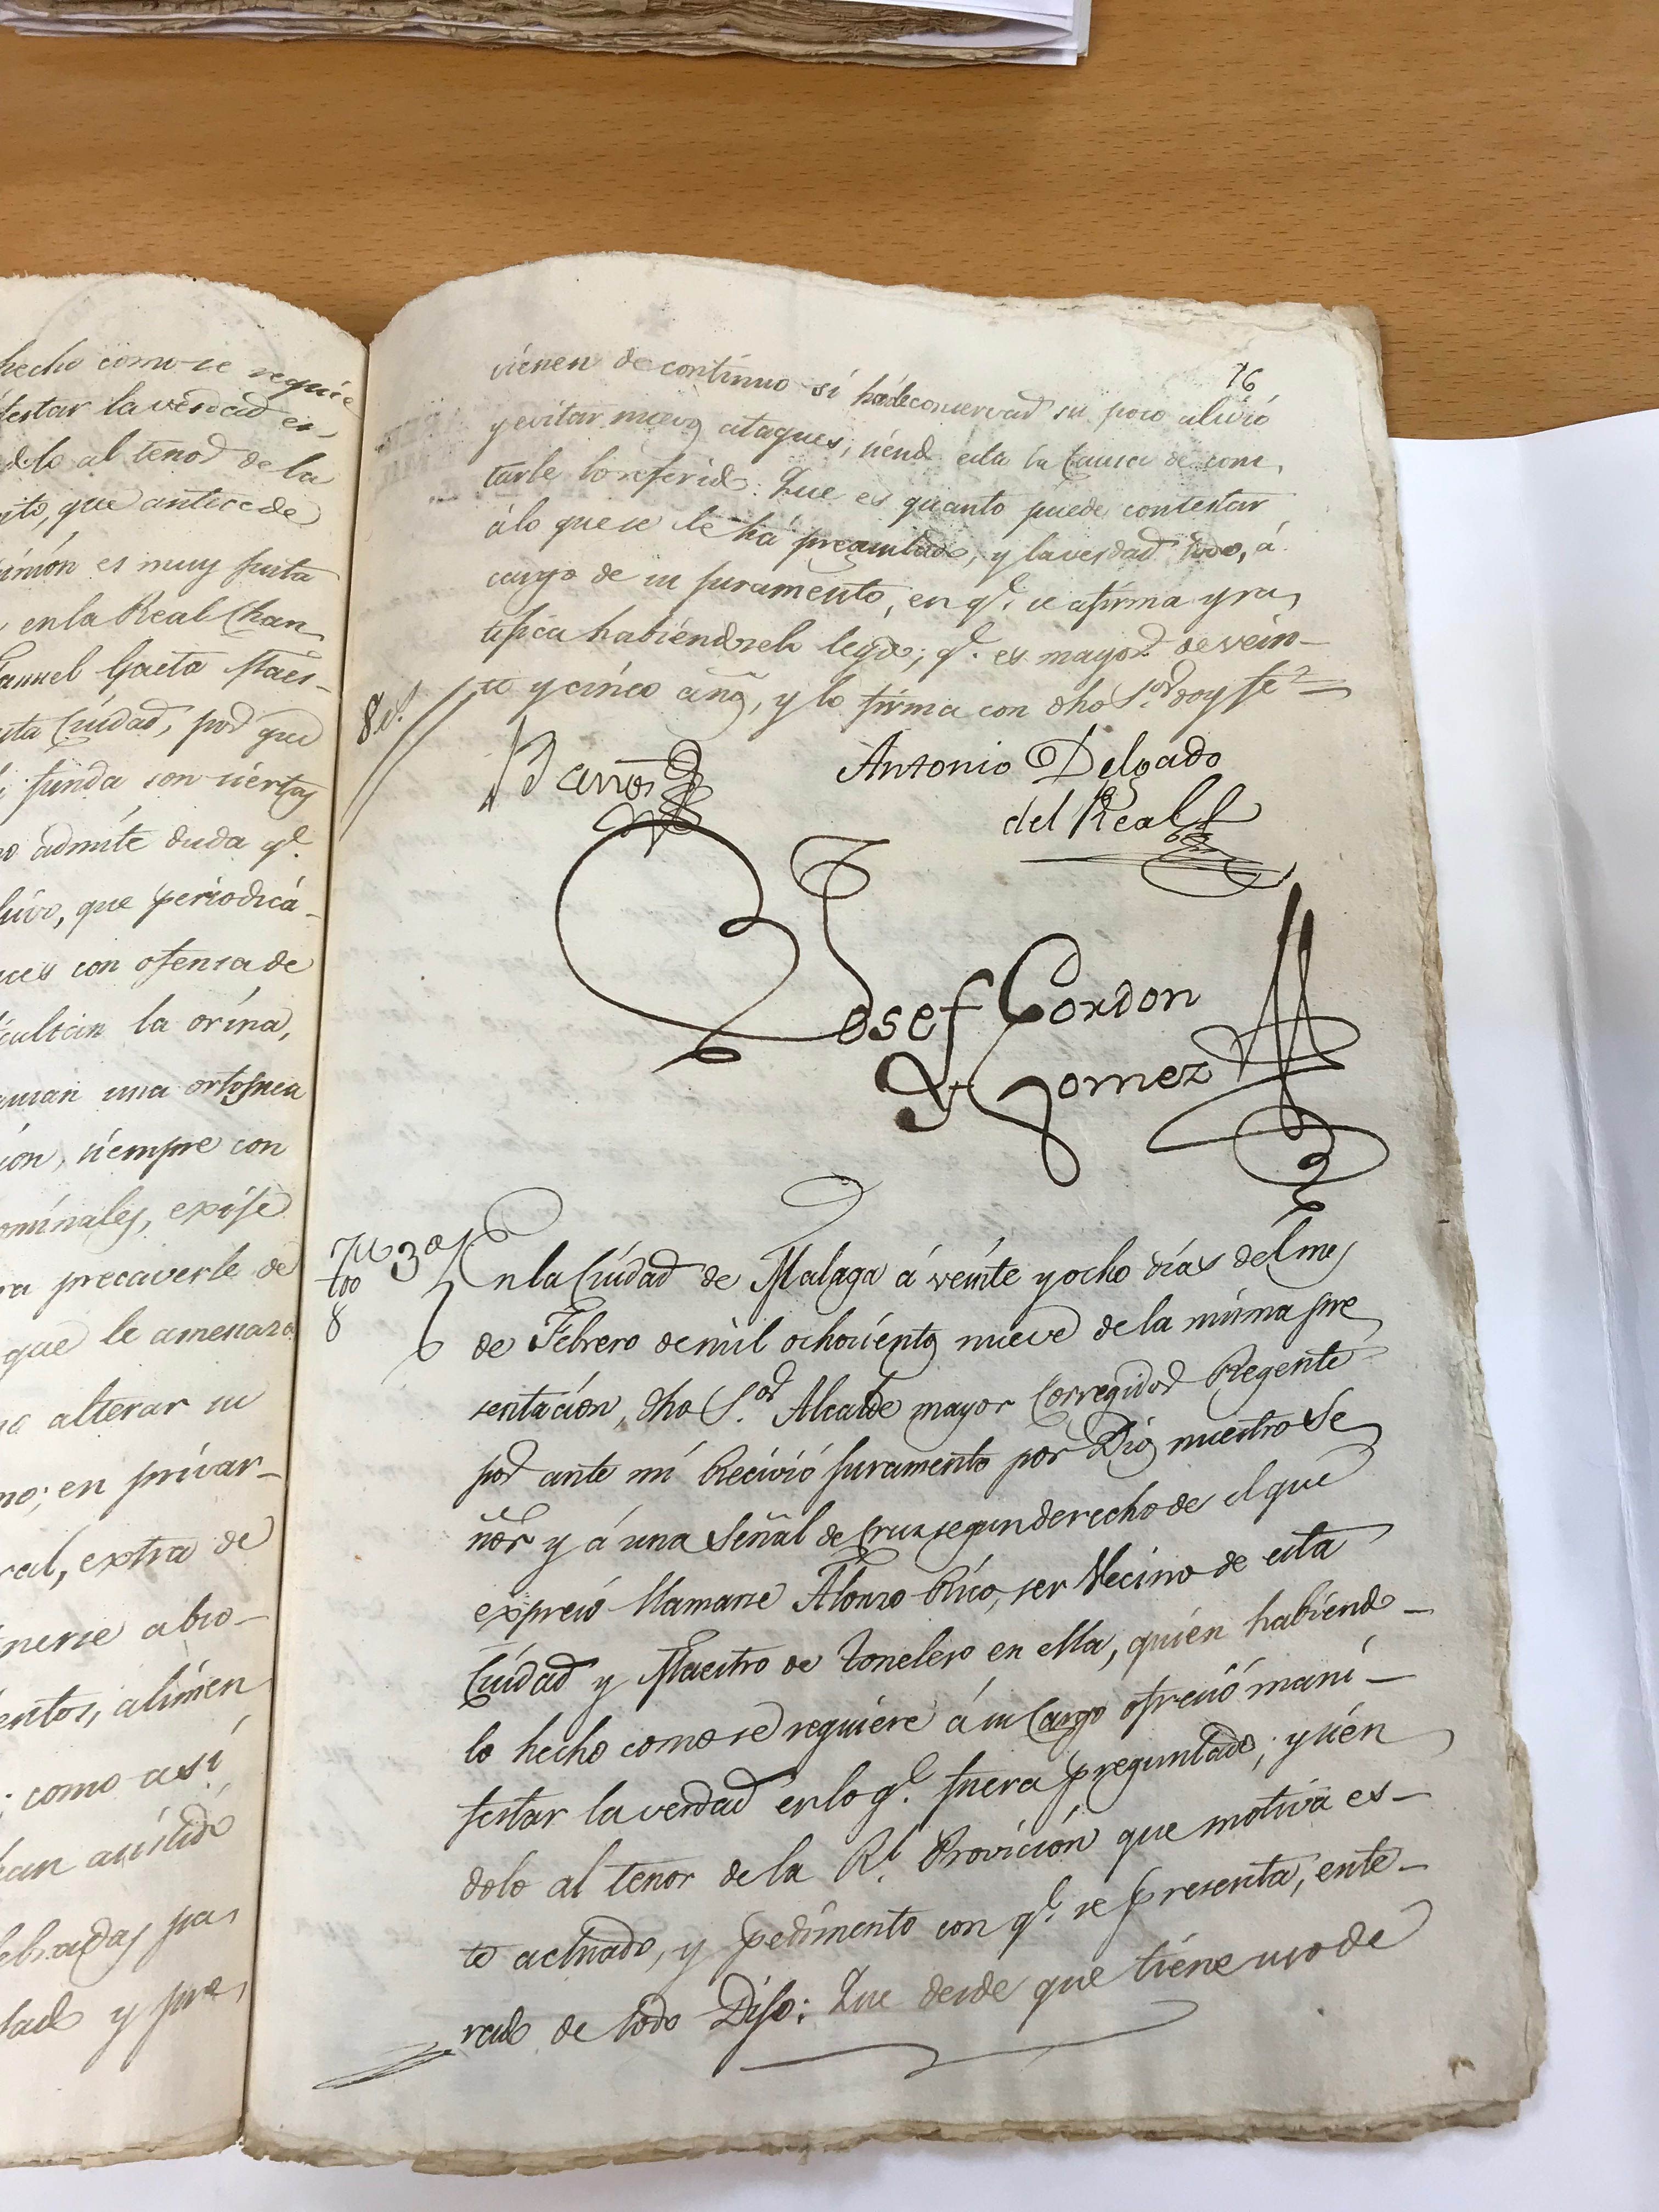 hecho como se requie
testar la verdad en
dolo al tenor de la
ito, que antecede
es muy justa
en la Real Chan
Manuel Gaeta Maes-
sta Ciudad, por que
funda son ciertas
no admite duda q.e
que periodicá-
con ofensa de
cultan la orina,
una
ion, siempre con
ominales, exije
ra precaverle de
que le amenaza
alterar su
mo; en privar-
extra de
nerse abso-
entos, alimen
; como así

pa
y pre
76
vienen de continuo si há de conservar su poco alivio
y evitar nuevos ataques, siendo esta la Causa de cons
tarle lo referido: Que es quanto puede contestar
á lo que se le há preguntado, y la verdad todo, á
cargo de su juramento, en q.e se afirma y ra
tifica habiendosele leydo; q.e es mayor de vein-
te y cinco años, y lo firma con dho S.or doy fe =
8
Antonio Delgado
del Real
Josef Cordon
y Gomez
3º
8
En la Ciudad de Malaga á veinte y ocho dias del mes
de Febrero de mil ochocientos nueve de la misma pre
sentación, dho S.or Alcalde mayor Corregidor Regente
por ante mi Recivió juramento por Dios nuestro Se
ñor y á una Señal de Cruz segun derecho de el que
expresó llamarse Alonso Rico, ser Vecino de esta
Ciudad y Maestro de tonelero en ella, quien habiendo-
lo hecho como se requiere á su Cargo ofreció mani-
festar la verdad en lo q.e fuera preguntado; y sien
dolo al tenor de la R.l Provición que motiva es-
te actuado, y pedimento con q.e se presenta, ente-
rado de todo Dijo: Que desde que tiene uso de